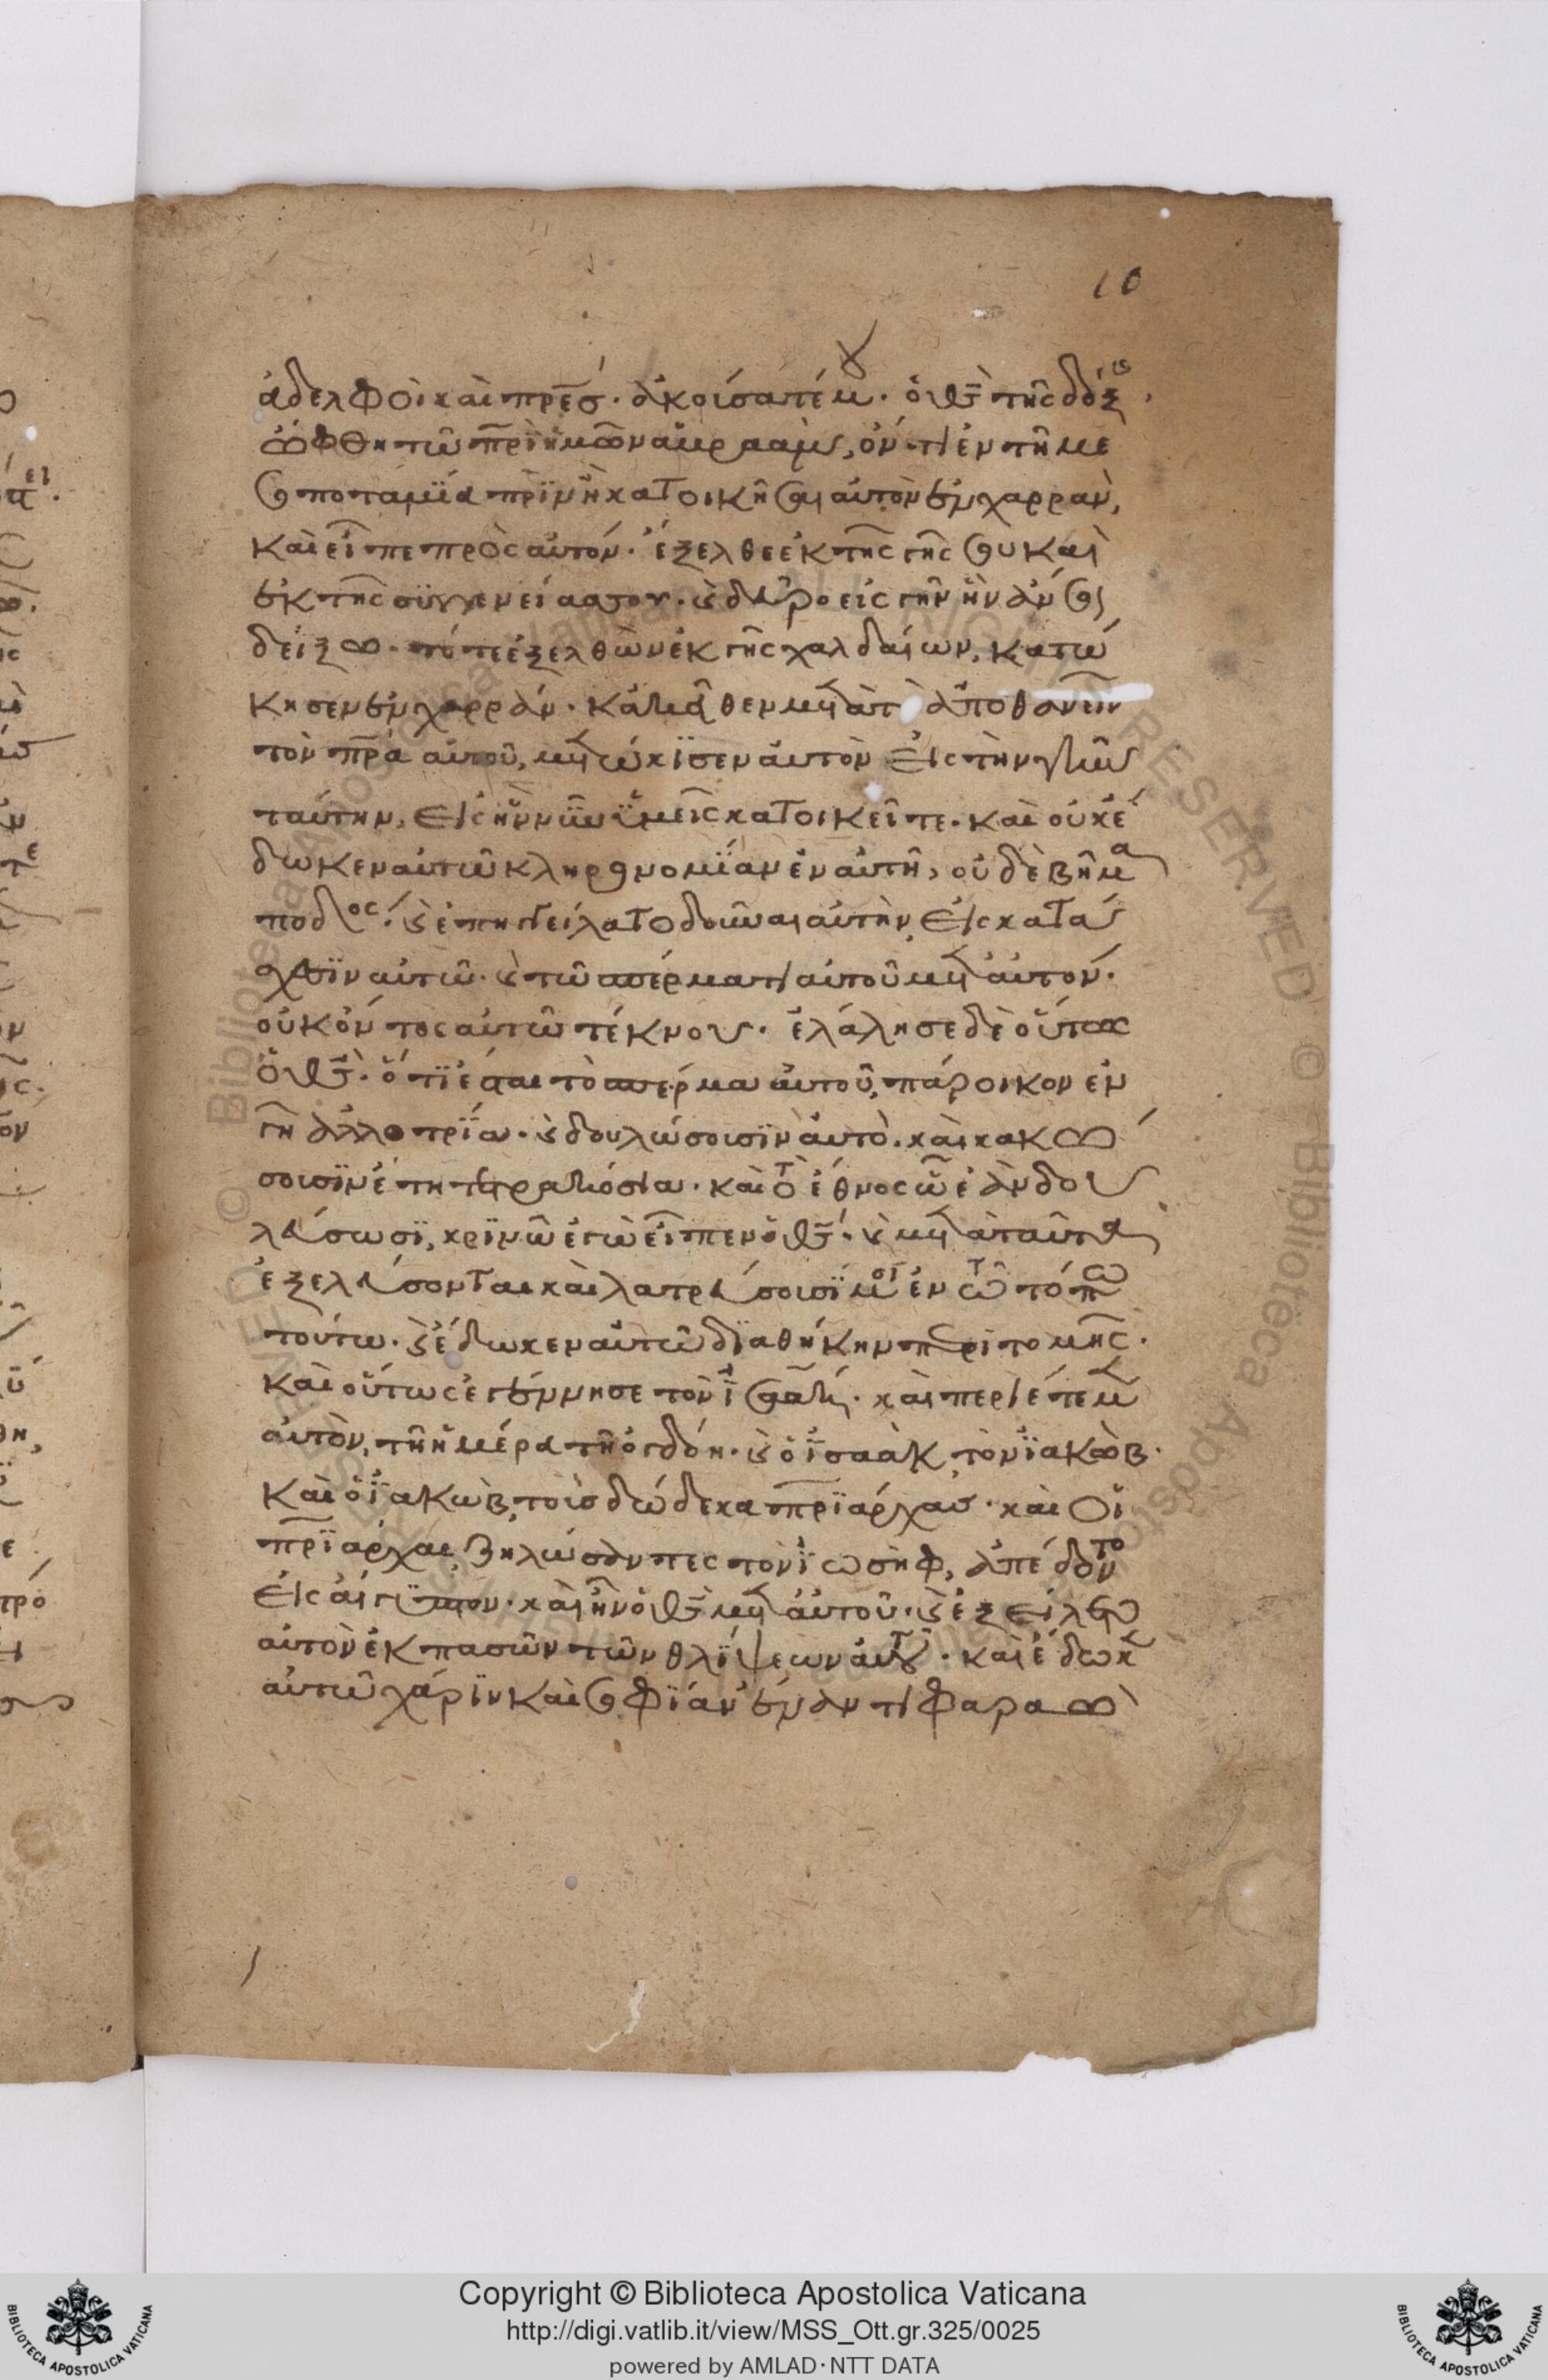 10
ἀδελφοὶ καὶ πρεσ. ἀκούσατέ μου. ὁ θς τῆς δόξης
ὤφθη τῶ πρὶ ἡμῶν ἀβρααμ, ὄντι ἐν τῆ με
σοποταμία πρὶν ἢ κατοικῆσαι αὐτὸν ἐν χαρράν,
καὶ εἶπε πρὸς αὐτόν. ἔξελθε ἐκ τῆς γῆς σου καὶ
ἐκ τῆς συγγενείας σου. καὶ δεῦρο εἰς γῆν ἣν ἄν σοι
δείξω. τότε ἐξελθὼν ἐκ γῆς χαλδαίων, κατώ
κησεν ἐν χαρράν. κἀκεῖθεν μετὰ τὸ ἀποθανεῖν
τὸν πρα αὐτοῦ, μετώκισεν αὐτὸν εἰς τὴν γῆν
ταύτην, εἰς ἣν νῦν ὑμεῖς κατοικεῖτε. καὶ οὐκ ἔ
δωκεν αὐτῶ κληρονομίαν ἐν αὐτῆ, οὐδὲ βῆμα
ποδός. καὶ ἐπηγγείλατο δοῦναι αὐτὴν εἰς κατά
σχεσιν αὐτῶ. καὶ τῶ σπέρματι αὐτοῦ μετ αὐτόν.
οὐκ ὄντος αὐτῶ τέκνου. ἐλάλησε δὲ οὕτως
ὁ θς. ὅτι ἔσται τὸ σπέρμα αὐτοῦ, πάροικον ἐν
γῆ ἀλλοτρία. καὶ δουλώσουσιν αὐτὸ. καὶ κακώ
σουσιν ἔτη τετρακόσια. καὶ τὸ ἔθνος ὧ ἐὰν δου
λεύσωσι, κρινῶ ἐγὼ εἶπεν ὁ θς. καὶ μετὰ ταῦτα
ἐξελεύσονται καὶ λατρεύσουσί μοι ἐν τῶ τόπω
τούτω. καὶ ἔδωκεν αὐτῶ διαθήκην περιτομῆς.
καὶ οὕτως ἐγέννησε τὸν ἰσαάκ. καὶ περιέτεμεν
αὐτὸν, τῆ ἡμέρα τῆ ὀγδόη. καὶ ὁ ἰσαὰκ, τὸν ἰακώβ.
καὶ ὁ ἰακὼβ, τοὺς δώδεκα πριάρχας. καὶ οἱ
πριάρχαι ζηλώσαντες τὸν ἰωσὴφ, ἀπέδοντο
εἰς αἴγυπτον. καὶ ἦν ὁ θς μετ αὐτοῦ. καὶ ἐξείλετο
αὐτὸν ἐκ πασῶν τῶν θλίψεων αὐτοῦ. καὶ ἔδωκεν
αὐτῶ χάριν καὶ σοφίαν ἐναντι φαραὼ
Copyright © Biblioteca Apostolica Vaticana
http://digi.vatlib.it/view/MSS_Ott.gr.325/0025
powered by AMLAD·NTT DATA